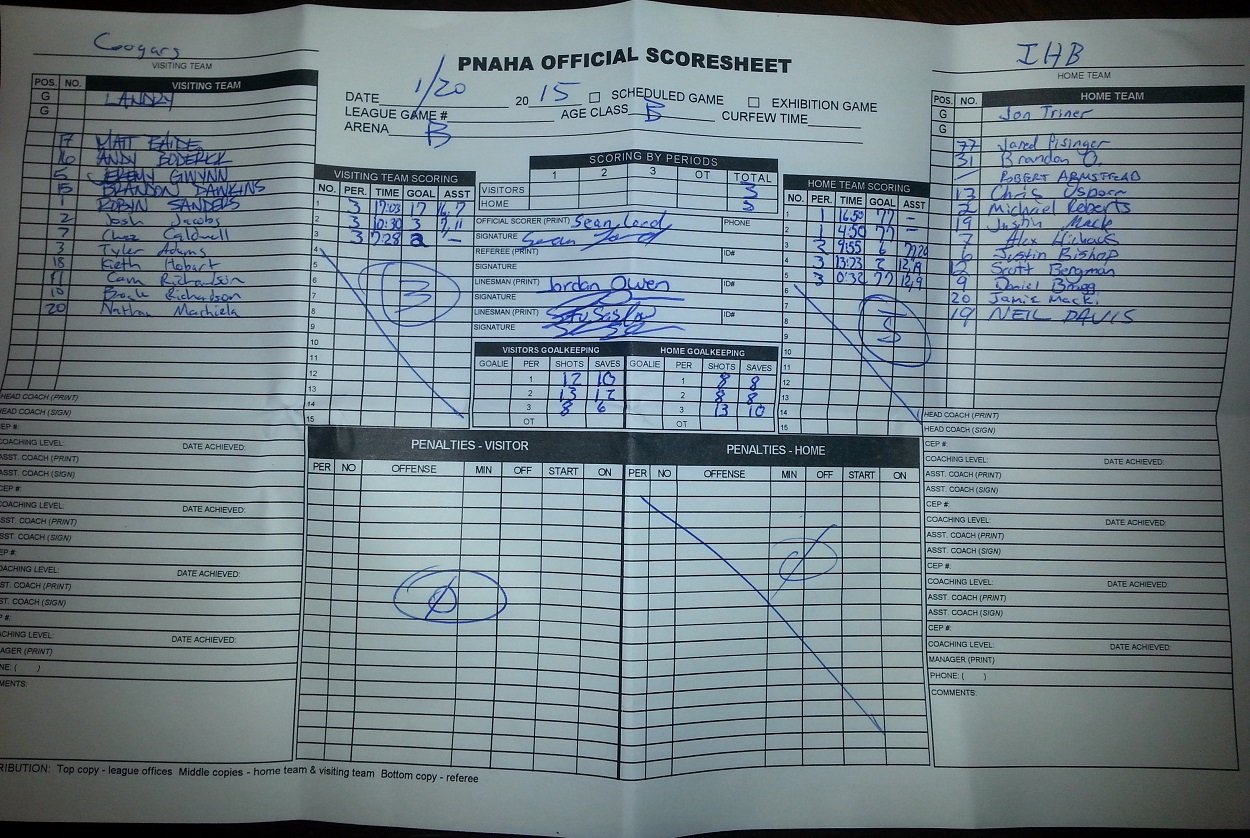 Cougars
VISITING TEAM
POS. NO. VISITING TEAM
G LANDRY
G
17 MATT
16 ANDY BODERICK
5 JEREMY GWYNN
15 BRANDON DAWKINS
1 ROBIN SANDERS
2 Josh Jacobs
7 Chaz Caldwell
3 Tyler Adams
18 Keith Hobart
11 Cam Richardson
10 Brock Richardson
20 Nathan Machiela
HEAD COACH (PRINT)
HEAD COACH (SIGN)
CEP #:
COACHING LEVEL: DATE ACHIEVED:
ASST. COACH (PRINT)
ASST. COACH (SIGN)
CEP #:
COACHING LEVEL: DATE ACHIEVED:
ASST. COACH (PRINT)
ASST. COACH (SIGN)
EP #:
COACHING LEVEL: DATE ACHIEVED:
ST. COACH (PRINT)
ST. COACH (SIGN)
P #:
ACHING LEVEL: DATE ACHIEVED:
AGER (PRINT)
NE: ( )
MENTS:
PNAHA OFFICIAL SCORESHEET
DATE 1/20 20 15 SCHEDULED GAME EXHIBITION GAME
LEAGUE GAME # AGE CLASS B CURFEW TIME
ARENA B
SCORING BY PERIODS
1 2 3 OT TOTAL
VISITORS 3
HOME 5
VISITING TEAM SCORING
NO. PER. TIME GOAL ASST
1 3 17:03 17 16, 7
2 3 10:30 3 7, 11
3 3 7:28 2 -
4
5
6
7
8
9
10
11
12
13
14
15
3
OFFICIAL SCORER (PRINT) Sean Lord PHONE
SIGNATURE Sean Lord
REFEREE (PRINT) ID#
SIGNATURE
LINESMAN (PRINT) Jordan Owen ID#
SIGNATURE
LINESMAN (PRINT) Stu Saslow ID#
SIGNATURE
HOME TEAM SCORING
NO. PER. TIME GOAL ASST
1 1 16:50 77 -
2 1 4:50 77 -
3 2 9:55 6 77, 20
4 3 13:23 2 12, 19
5 3 0:32 77 12, 9
6
7
8
9
10
11
12
13
14
15
5
VISITORS GOALKEEPING
GOALIE PER SHOTS SAVES
1 12 10
2 13 12
3 8 6
OT
HOME GOALKEEPING
GOALIE PER SHOTS SAVES
1 8 8
2 8 8
3 13 10
OT
PENALTIES - VISITOR
PER NO OFFENSE MIN OFF START ON
Ø
PENALTIES - HOME
PER NO OFFENSE MIN OFF START ON
Ø
IHB
HOME TEAM
POS. NO. HOME TEAM
G Jon Triner
G
77 Jared Pisinger
31 Brandon O.
ROBERT ARMSTEAD
13 Chris Osborn
2 Michael Roberts
19 Justin Mack
7 Alex
6 Justin Bishop
12 Scott Bergman
9 Daniel Bragg
20 Jamie Macki
19 NEIL DAVIS
HEAD COACH (PRINT)
HEAD COACH (SIGN)
CEP #:
COACHING LEVEL: DATE ACHIEVED:
ASST. COACH (PRINT)
ASST. COACH (SIGN)
CEP #:
COACHING LEVEL: DATE ACHIEVED:
ASST. COACH (PRINT)
ASST. COACH (SIGN)
CEP #:
COACHING LEVEL: DATE ACHIEVED:
ASST. COACH (PRINT)
ASST. COACH (SIGN)
CEP #:
COACHING LEVEL: DATE ACHIEVED:
MANAGER (PRINT)
PHONE: ( )
COMMENTS:
RIBUTION: Top copy - league offices Middle copies - home team & visiting team Bottom copy - referee